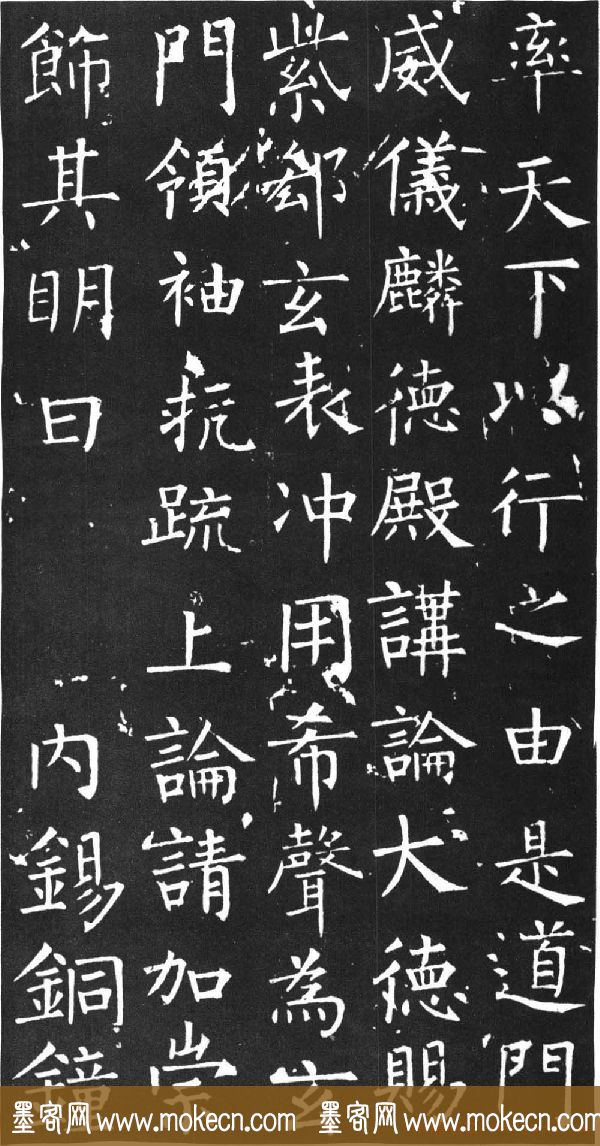 率天下以行之由是道門
威儀麟德殿講論大德賜
紫郄玄表冲用希聲為玄
門領袖抗疏上論請加崇
飾其明日 内錫銅鐘
墨客网 www.mokecn.com 墨客网 www.mokecn.com